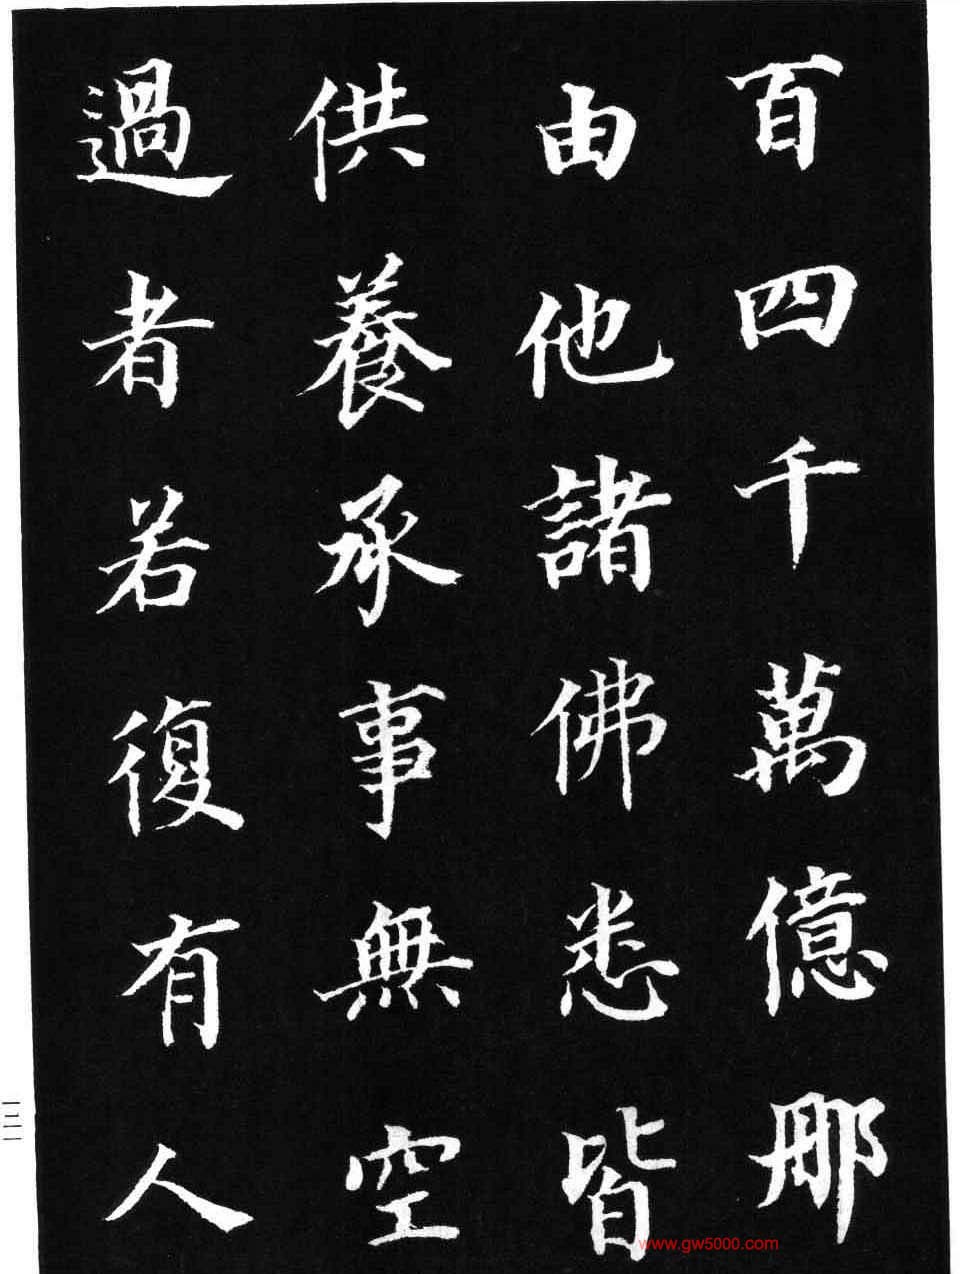 百四千萬億那
由他諸佛悉皆
供養承事無空
過者若復有人
www.gw5000.com